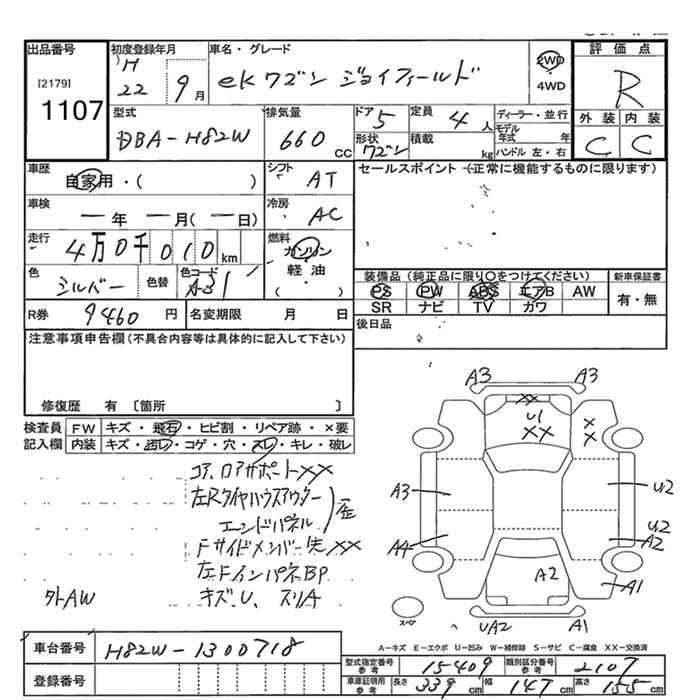 出品番号
[2179]
1107
初度登録年月
H
22 9月
車名・グレード
eKワゴン ジョイフィールド
2WD
4WD
評価点
R
外装 内装
C C
型式
DBA-H82W
排気量
660 cc
ドア 5
形状 ワゴン
定員 4人
積載 kg
ディーラー・並行
モデル年式 年
ハンドル 左・右
車歴
自家用・( )
シフト
AT
車検
ー年 ー月(ー日)
冷房
AC
走行
4万0千010km
燃料
ガソリン
軽油
( )
色
シルバー
色替
色コード
A31
R券 9460円
名変期限 月 日
セールスポイント(正常に機能するものに限ります)
装備品(純正品に限り○をつけてください)
PS PW ABS エアB AW
SR ナビ TV カワ
新車保証書
有・無
後日品
注意事項申告欄(不具合内容等は具体的に記入して下さい)
修復歴 有 〔箇所 〕
検査員
記入欄
FW キズ・飛石・ヒビ割・リペア跡・×要
内装 キズ・汚レ・コゲ・穴・スレ・キレ・破レ
コア、ロアサポートXX
左Rタイヤハウスアウター
エンドパネル
Fサイドメンバー先XX
左FインパネBP
キズ、U、スリA
外AW
A3 A3
XX
U1
XX
X
X
A3
A4
U2
U2
A2
A1
A2
UA2 A1
スペア
A-キズ E-エクボ U-凹み W-補修跡 S-サビ C-腐食 XX-交換済
車台番号
H82W-1300718
登録番号
型式指定番号
参考
15409
類別区分番号
参考
2107
車庫証明用
参考
長さ 339cm
幅 147cm
高さ 155cm